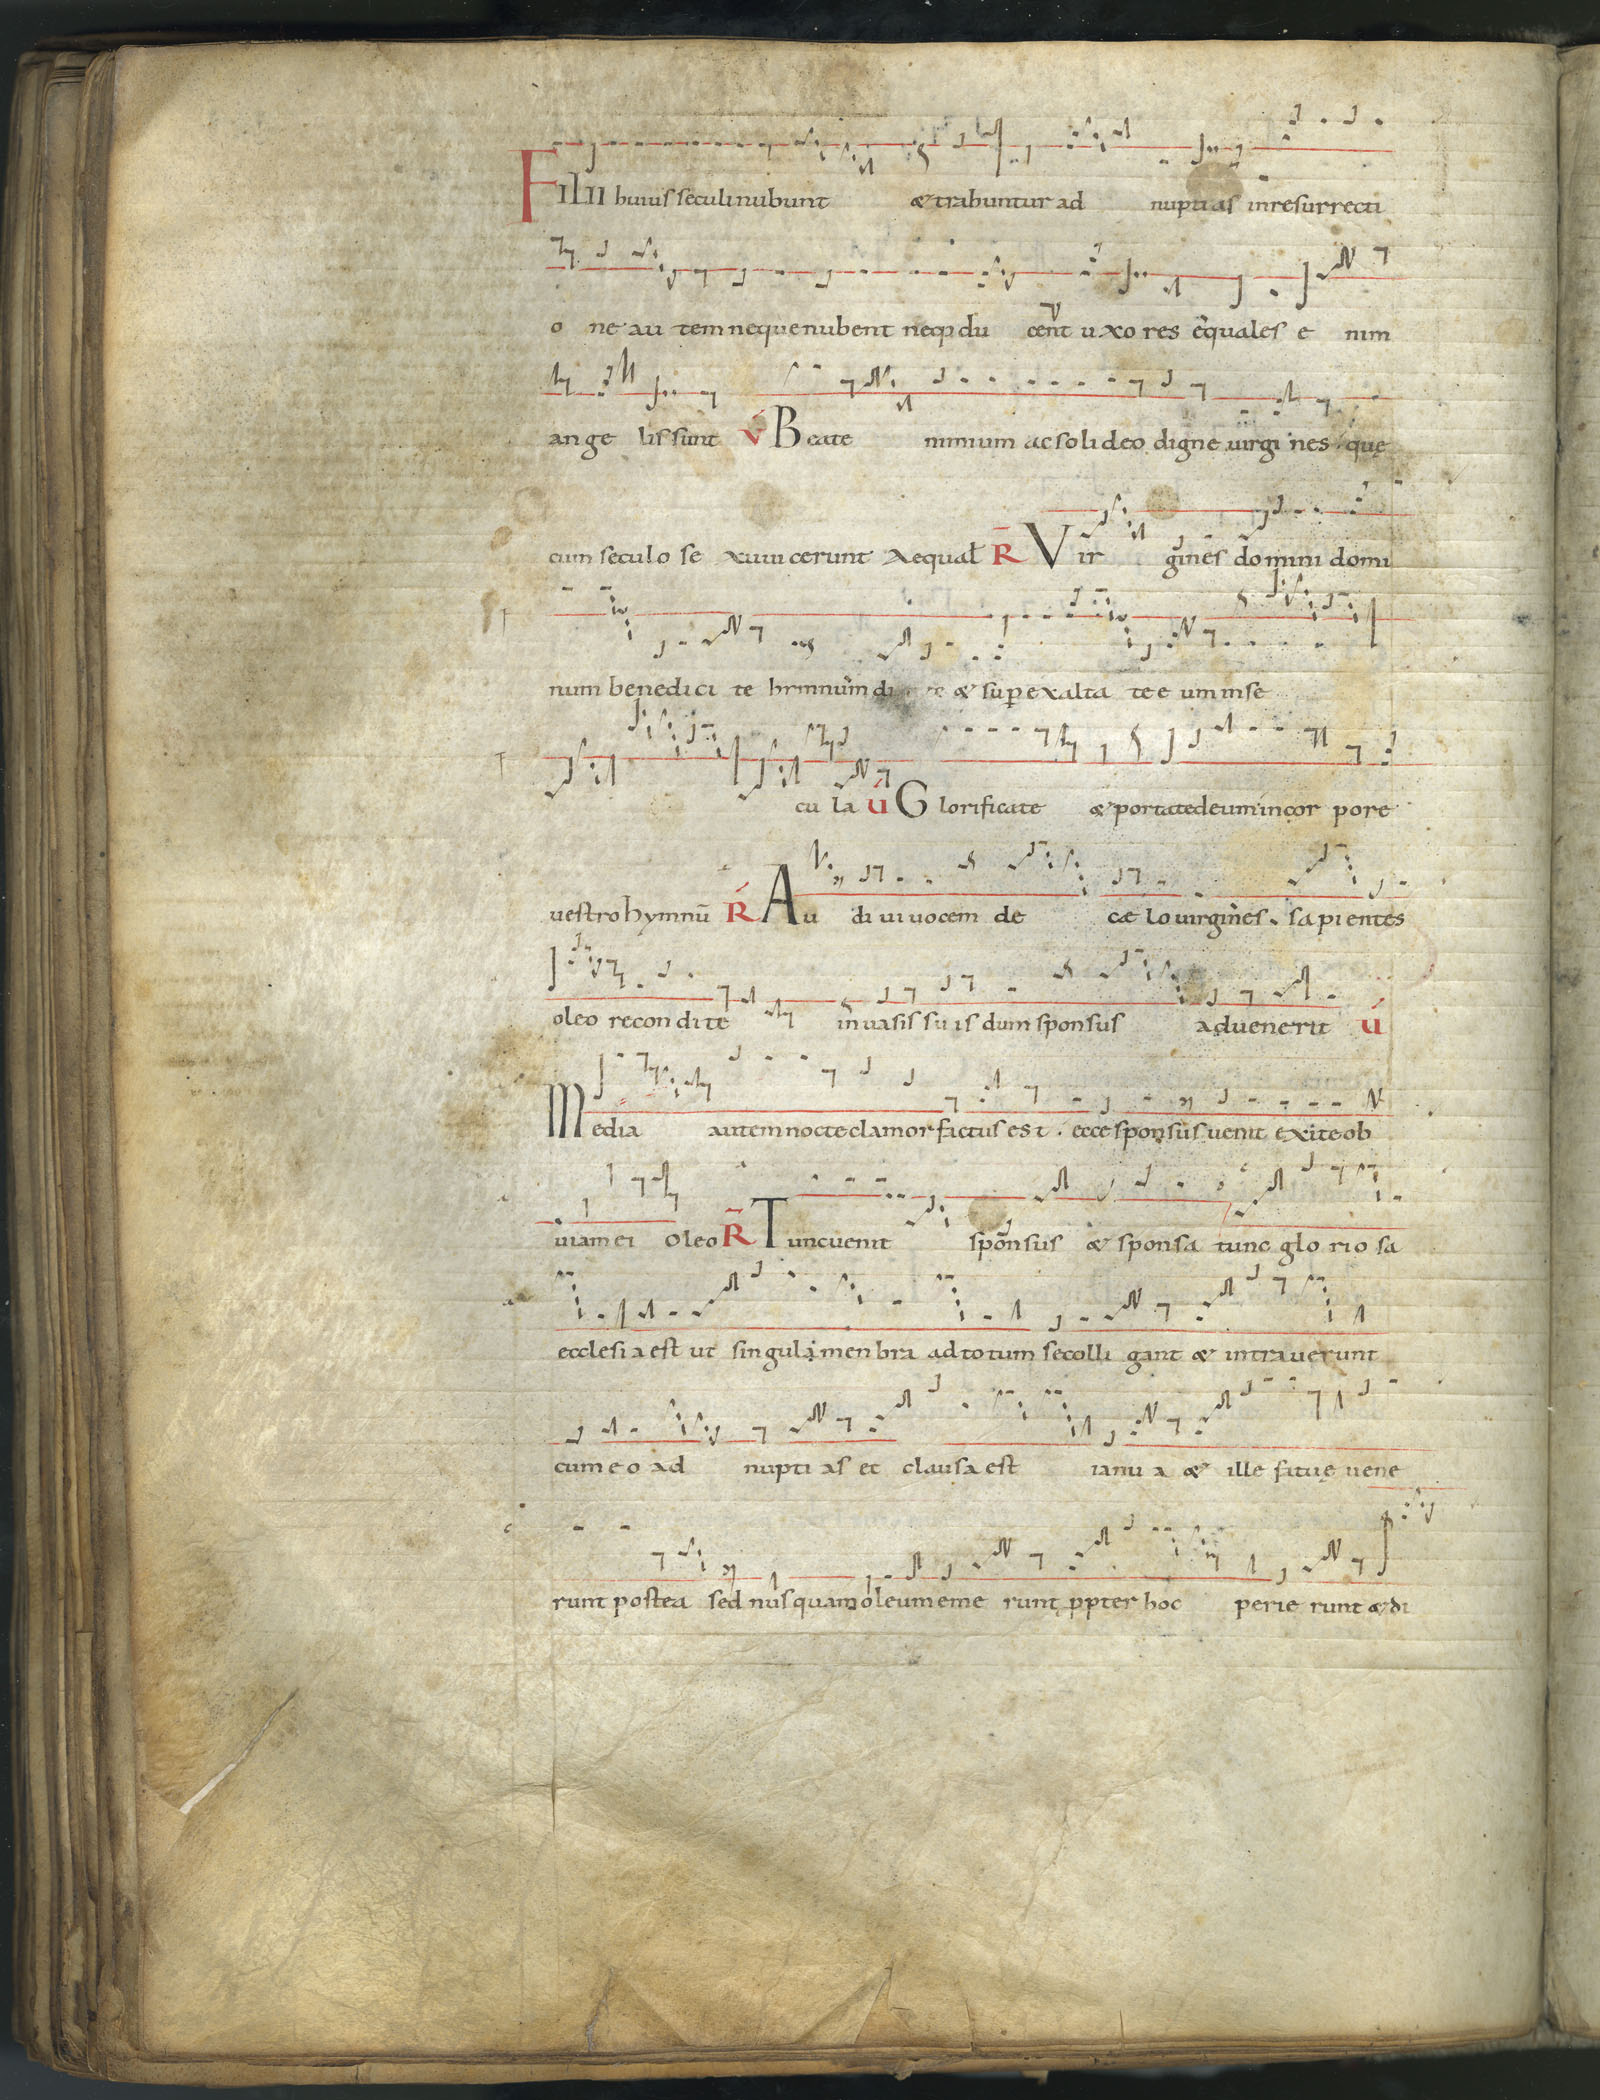 FILII huius seculi nubunt & trabuntur ad nuptias in resurrecti
o ne autem neque nubent neq; du cent uxores equales e nim
ange lis sunt V Beate nimium ac soli deo digne uirgi nes quę
cum seculo se xum cerunt Aequal R Vir gines domini domi
num benedici te hrmnum di & sup exalta te eum in se
cu la V Glorificate & portate deum in cor pore
uestro hymnū R Au di ui uocem de cæ lo uirgines. sapientes
oleo recondite in uasis suis dum sponsus aduenerit V
Media autem nocte clamor factus est. ecce sponsus uenit exite ob
uiam ei oleo R Tunc uenit sponsus & sponsa tunc glo rio sa
ecclesia est ut singula menbra ad totum se colli gant & intrauerunt
cum eo ad nupti as et clausa est ianu a & ille fatuę uene
runt postea sed nusquam oleum eme runt ppter hoc perie runt & di